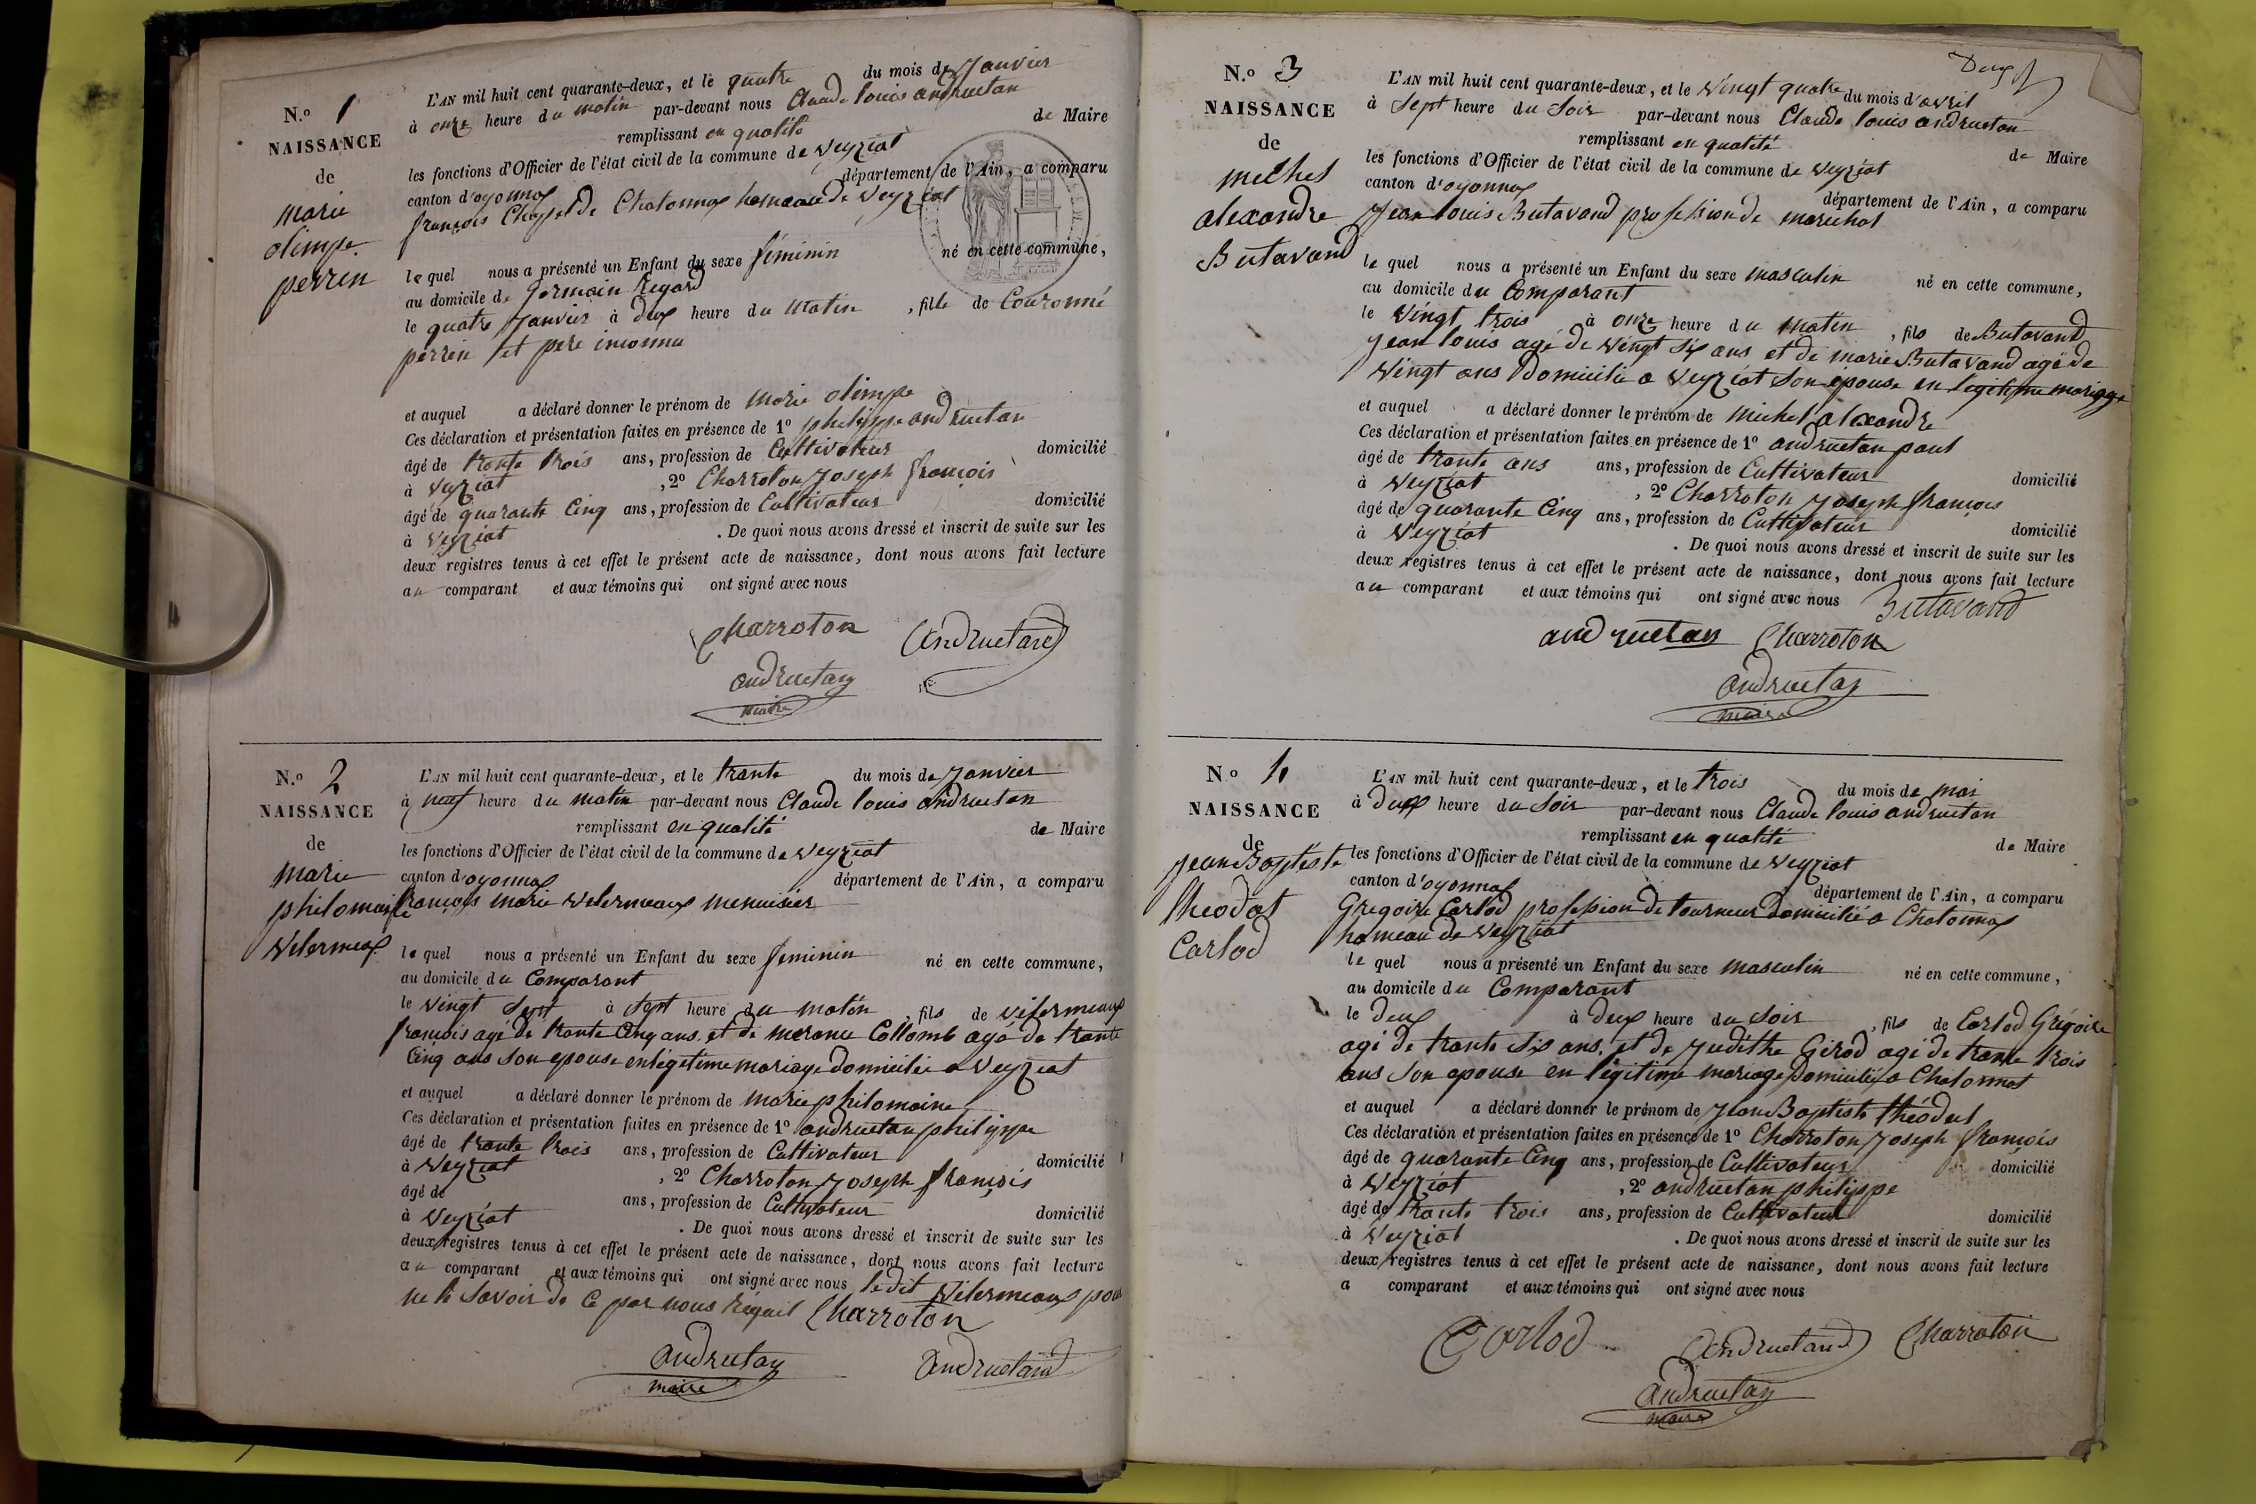 N.º 1
NAISSANCE
de
marie
olimpe
perrin
L'AN mil huit cent quarante-deux, et le quatre du mois de Janvier
à onze heure du matin par-devant nous Claude louis andruetan
remplissant en qualité de Maire
les fonctions d'Officier de l'état civil de la commune de veyziat
canton d'oyonnax département de l'Ain, a comparu
françois de Chatonnax hameau de Veyziat
le quel nous a présenté un Enfant du sexe féminin né en cette commune,
au domicile de germain Regard
le quatre Janvier à deux heure du matin, fille de Couronné
perrin et pere inconnu
et auquel a déclaré donner le prénom de marie olimpe
Ces déclaration et présentation faites en présence de 1º philippe andruetan
âgé de trante trois ans, profession de Cultivateur domicilié
à veyziat, 2º Charroton Joseph françois
âgé de quarante Cinq ans, profession de Cultivateur domicilié
à veyziat. De quoi nous avons dressé et inscrit de suite sur les
deux registres tenus à cet effet le présent acte de naissance, dont nous avons fait lecture
au comparant et aux témoins qui ont signé avec nous
Charroton andruetand
andruetan
maire
N.º 2
NAISSANCE
de
marie
philomaine
Velermeax
L'AN mil huit cent quarante-deux, et le trante du mois de Janvier
à neuf heure du matin par-devant nous Claude louis andruetan
remplissant en qualité de Maire
les fonctions d'Officier de l'état civil de la commune de veyziat
canton d'oyonnax département de l'Ain, a comparu
françois marie velermeaux menuisier
le quel nous a présenté un Enfant du sexe féminin né en cette commune,
au domicile du Comparant
le vingt sept à sept heure du matin, fils de velermeaux
françois agé de trante Cinq ans et de Collomb agé de trante
Cinq ans son epouse en légetime mariage domiciliée a Veyziat
et auquel a déclaré donner le prénom de marie philomaine
Ces déclaration et présentation faites en présence de 1º andruetan philippe
âgé de trante trois ans, profession de Cultivateur domicilié
à Veyziat, 2º Charroton Joseph françois
âgé de ans, profession de Cultivateur domicilié
à Veyziat. De quoi nous avons dressé et inscrit de suite sur les
deux registres tenus à cet effet le présent acte de naissance, dont nous avons fait lecture
au comparant et aux témoins qui ont signé avec nous ledit velermeaux pour
ne le savoir de ce par nous réquit Charroton
andruetan andruetand
maire
Deux
N.º 3
NAISSANCE
de
michel
alexandre
Butavand
L'AN mil huit cent quarante-deux, et le vingt quatre du mois d'avril
à Sept heure du Soir par-devant nous Claude louis andruetan
remplissant en qualité de Maire
les fonctions d'Officier de l'état civil de la commune de veyziat
canton d'oyonnax département de l'Ain, a comparu
Jean louis Butavand profession de marechal
le quel nous a présenté un Enfant du sexe masculin né en cette commune,
au domicile du Comparant
le vingt trois à onze heure du matin, fils de Butavand
Jean louis agé de vingt six ans et de marie Butavand agé de
vingt ans Domicilié a veyziat Son épouse en légitime mariage
et auquel a déclaré donner le prénom de michel alexandre
Ces déclaration et présentation faites en présence de 1º andruetan paul
âgé de trante ans ans, profession de Cultivateur domicilié
à Veyziat, 2º Charroton Joseph françois
âgé de quarante Cinq ans, profession de Cultivateur domicilié
à Veyziat. De quoi nous avons dressé et inscrit de suite sur les
deux registres tenus à cet effet le présent acte de naissance, dont nous avons fait lecture
au comparant et aux témoins qui ont signé avec nous Butavand
andruetan Charroton
andruetan
maire
Nº 4
NAISSANCE
de
Jean Baptiste
theodat
Carlod
L'AN mil huit cent quarante-deux, et le trois du mois de mai
à deux heure du Soir par-devant nous Claude louis andruetan
remplissant en qualité de Maire
les fonctions d'Officier de l'état civil de la commune de veyziat
canton d'oyonnax département de l'Ain, a comparu
Gregoire Carlod profession de tourneur Domicilié a Chatonnax
hameau de Veyziat
le quel nous a présenté un Enfant du sexe masculin né en cette commune,
au domicile du Comparant
le deux à deux heure du Soir, fils de Carlod Grégoire
agé de trante six ans, et de Judithe Girod agé de trante trois
ans Son epouse en légitime mariage Domicilié a Chatonnat
et auquel a déclaré donner le prénom de Jean Baptiste théodul
Ces déclaration et présentation faites en présence de 1º Charroton Joseph françois
âgé de quarante Cinq ans, profession de Cultivateur domicilié
à Veyziat, 2º andruetan philippe
âgé de trante trois ans, profession de Cultivateur domicilié
à Veyziat. De quoi nous avons dressé et inscrit de suite sur les
deux registres tenus à cet effet le présent acte de naissance, dont nous avons fait lecture
a comparant et aux témoins qui ont signé avec nous
Carlod andruetand Charroton
andruetan
maire